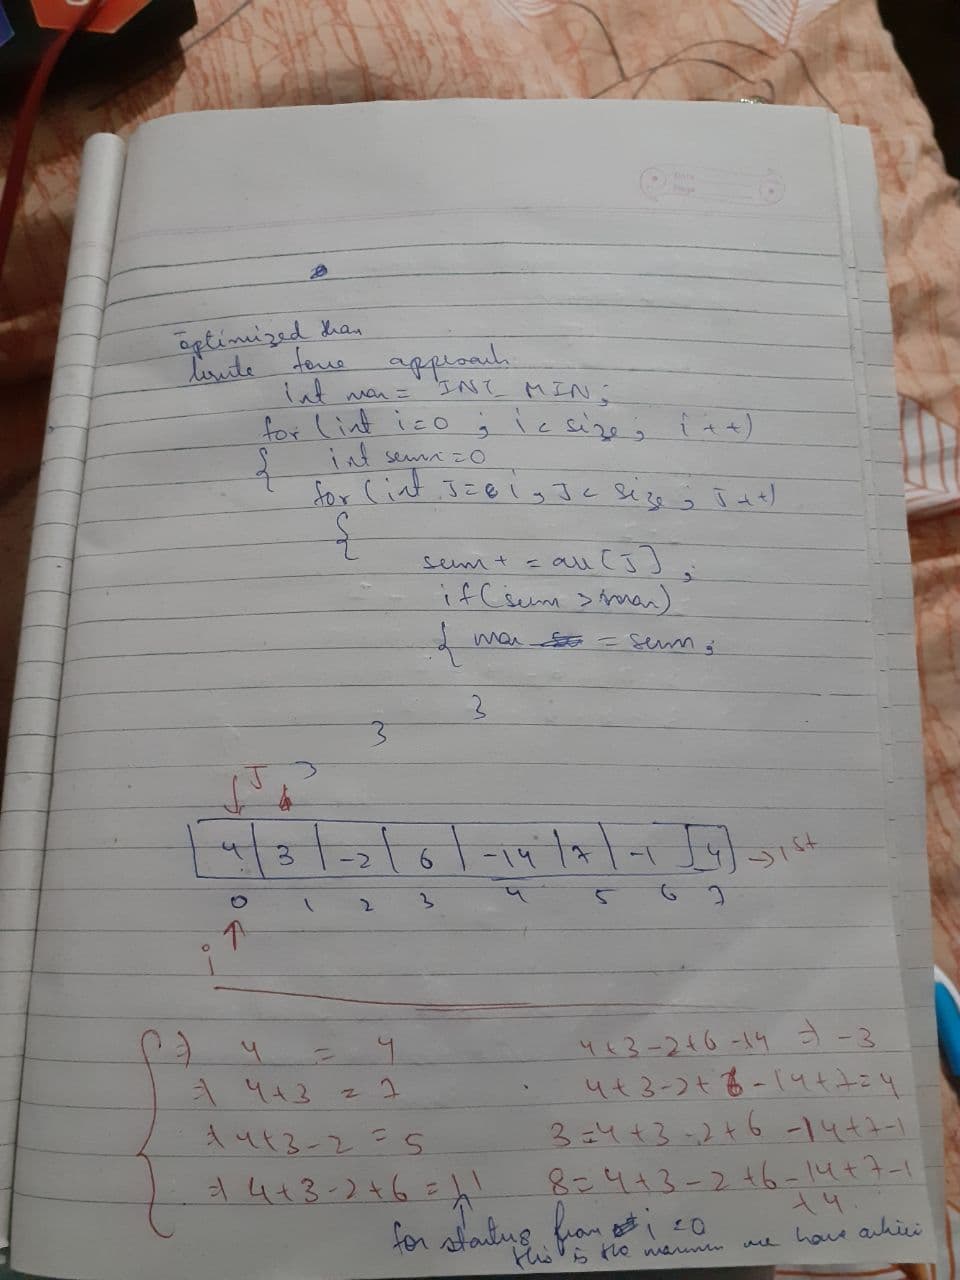 Date
Page
optimized than
brute force approach
int max = INT_MIN;
for (int i=0 ; i < size ; i++)
{ int sum=0
for (int J=i ; J < size ; J++)
{
sum+ = arr[J] ;
if (sum > max)
{ max = sum ;
}
}
}
J
4 3 -2 6 -14 7 -1 4 → 1st
0 1 2 3 4 5 6 7
i
⇒ 4 = 4
⇒ 4+3 = 7
⇒ 4+3-2 = 5
⇒ 4+3-2+6 = 11
4+3-2+6-14 ⇒ -3
4+3-2+6-14+7=4
3=4+3-2+6-14+7-1
8=4+3-2+6-14+7-1
+4
for starting from i=0
this is the maximum we have